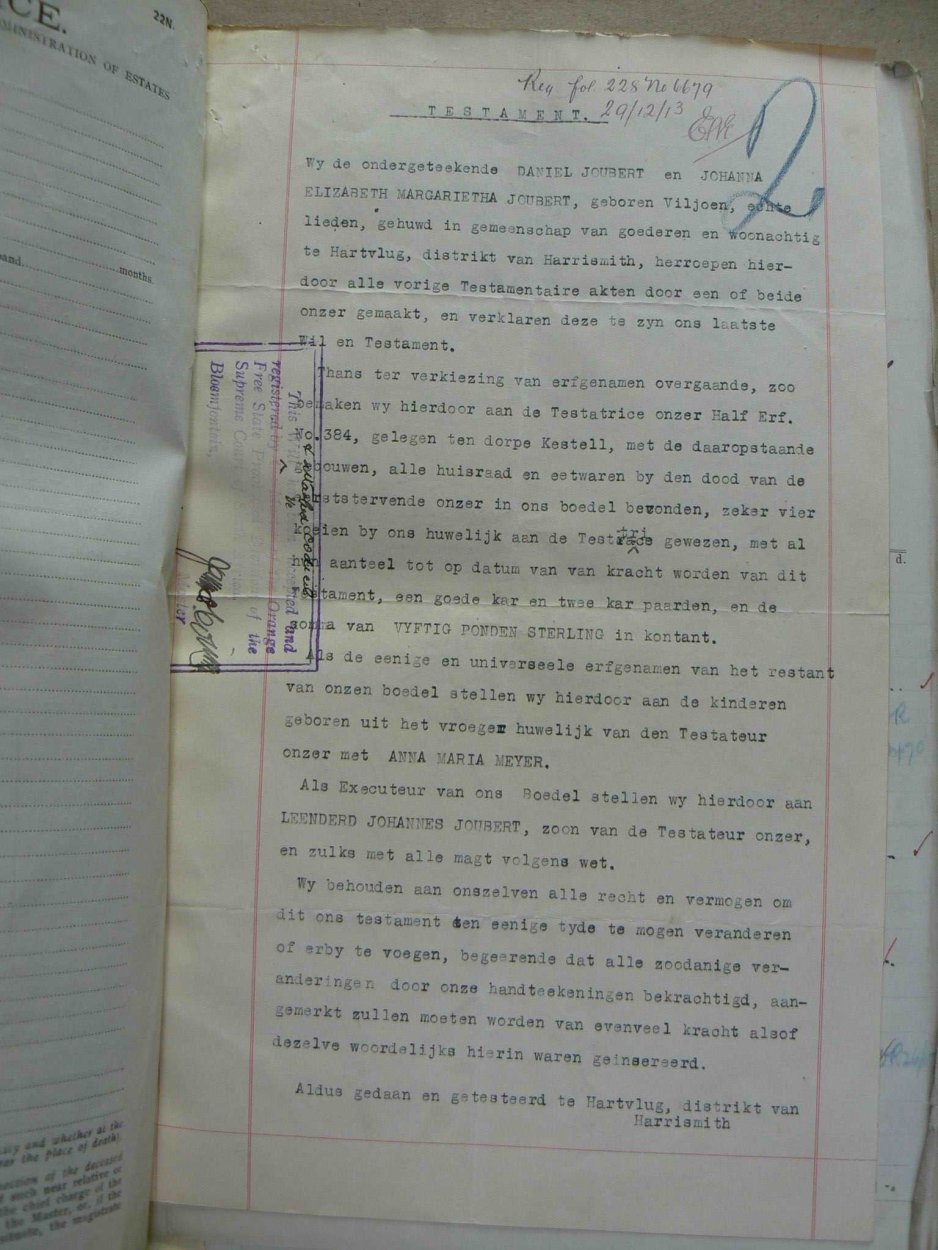 CE.
22N.
MINISTRATION OF ESTATES
months.
Reg fol. 228 No 6679
TESTAMENT. 29/12/13
2
Wy de ondergeteekende DANIEL JOUBERT en JOHANNA
ELIZABETH MARGARIETHA JOUBERT, geboren Viljoen, echte
lieden, gehuwd in gemeenschap van goederen en woonachtig
te Hartvlug, distrikt van Harrismith, herroepen hier-
door alle vorige Testamentaire akten door een of beide
onzer gemaakt, en verklaren deze te zyn ons laatste
Wil en Testament.
Thans ter verkiezing van erfgenamen overgaande, zoo
bemaken wy hierdoor aan de Testatrice onzer Half Erf.
No.384, gelegen ten dorpe Kestell, met de daaropstaande
gebouwen, alle huisraad en eetwaren by den dood van de
eerststervende onzer in ons boedel bevonden, zeker vier
koeien by ons huwelijk aan de Testatrice gewezen, met al
hun aanteel tot op datum van van kracht worden van dit
testament, een goede kar en twee kar paarden, en de
somma van VYFTIG PONDEN STERLING in kontant.
Als de eenige en universeele erfgenamen van het restant
van onzen boedel stellen wy hierdoor aan de kinderen
geboren uit het vroeger huwelijk van den Testateur
onzer met ANNA MARIA MEYER.
Als Executeur van ons Boedel stellen wy hierdoor aan
LEENDERD JOHANNES JOUBERT, zoon van de Testateur onzer,
en zulks met alle magt volgens wet.
Wy behouden aan onszelven alle recht en vermogen om
dit ons testament ten eenige tyde te mogen veranderen
of erby te voegen, begeerende dat alle zoodanige ver-
anderingen door onze handteekeningen bekrachtigd, aan-
gemerkt zullen moeten worden van evenveel kracht alsof
dezelve woordelijks hierin waren geinsereerd.
Aldus gedaan en getesteerd te Hartvlug, distrikt van
Harrismith
This
and
registered by
Orange
Free State
of the
Supreme Court
Bloemfontein.
d.
and whether at the
the place of death)
of the deceased
such near relative or
the chief charge of the
the Master, or, if the
the magistrate